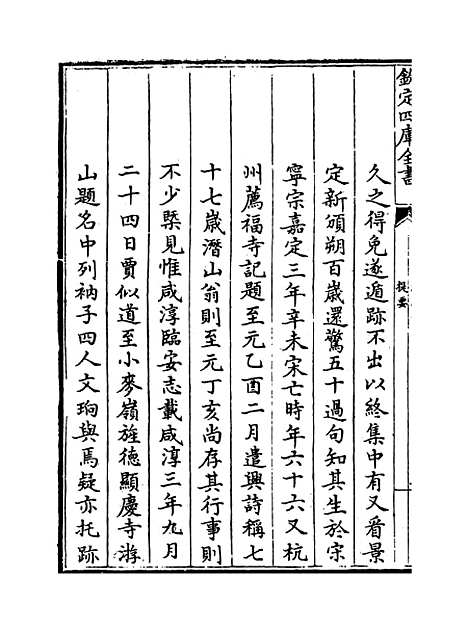 欽定四庫全書
提要
久之得免遂遁跡不出以終集中有又看景
定新頒朔百歲還驚五十過句知其生於宋
寧宗嘉定三年辛未宋亡時年六十六又杭
州薦福寺記題至元乙酉二月遣興詩稱七
十七歲潛山翁則至元丁亥尚存其行事則
不少槩見惟咸淳臨安志載咸淳三年九月
二十四日賈似道至小麥嶺旌德顯慶寺游
山題名中列衲子四人文珦與焉疑亦托跡